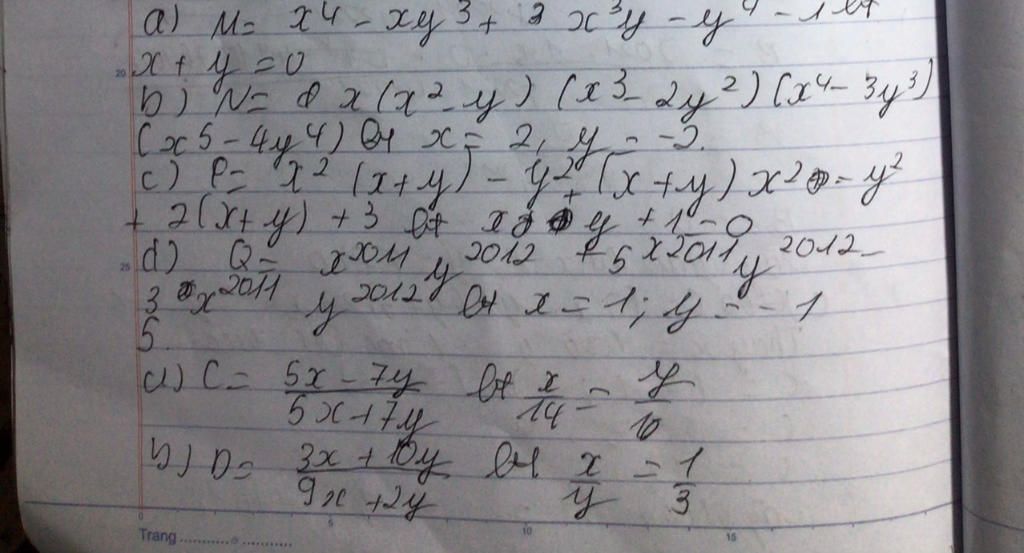 a) M = x⁴ - xy³ + x³y - y⁴ - 1 bt
20
x + y = 0
b) N = x(x² - y)(x³ - 2y²)(x⁴ - 3y³)
(x5 - 4y⁴) bt x = 2, y = -2.
c) P = x² (x+y) - y² (x+y) + x² - y²
+ 2(x+y) + 3 bt x + y + 1 = 0
25
d) Q = x²⁰¹¹ y²⁰¹² + 5x²⁰¹¹ y²⁰¹² -
3 x²⁰¹¹ y²⁰¹² bt x = 1; y = -1
5.
a) C = 5x - 7y / 5x + 7y bt x/14 = y/10
b) D = 3x + 10y / 9x + 2y bt x/y = 1/3
0 5 10 15
Trang